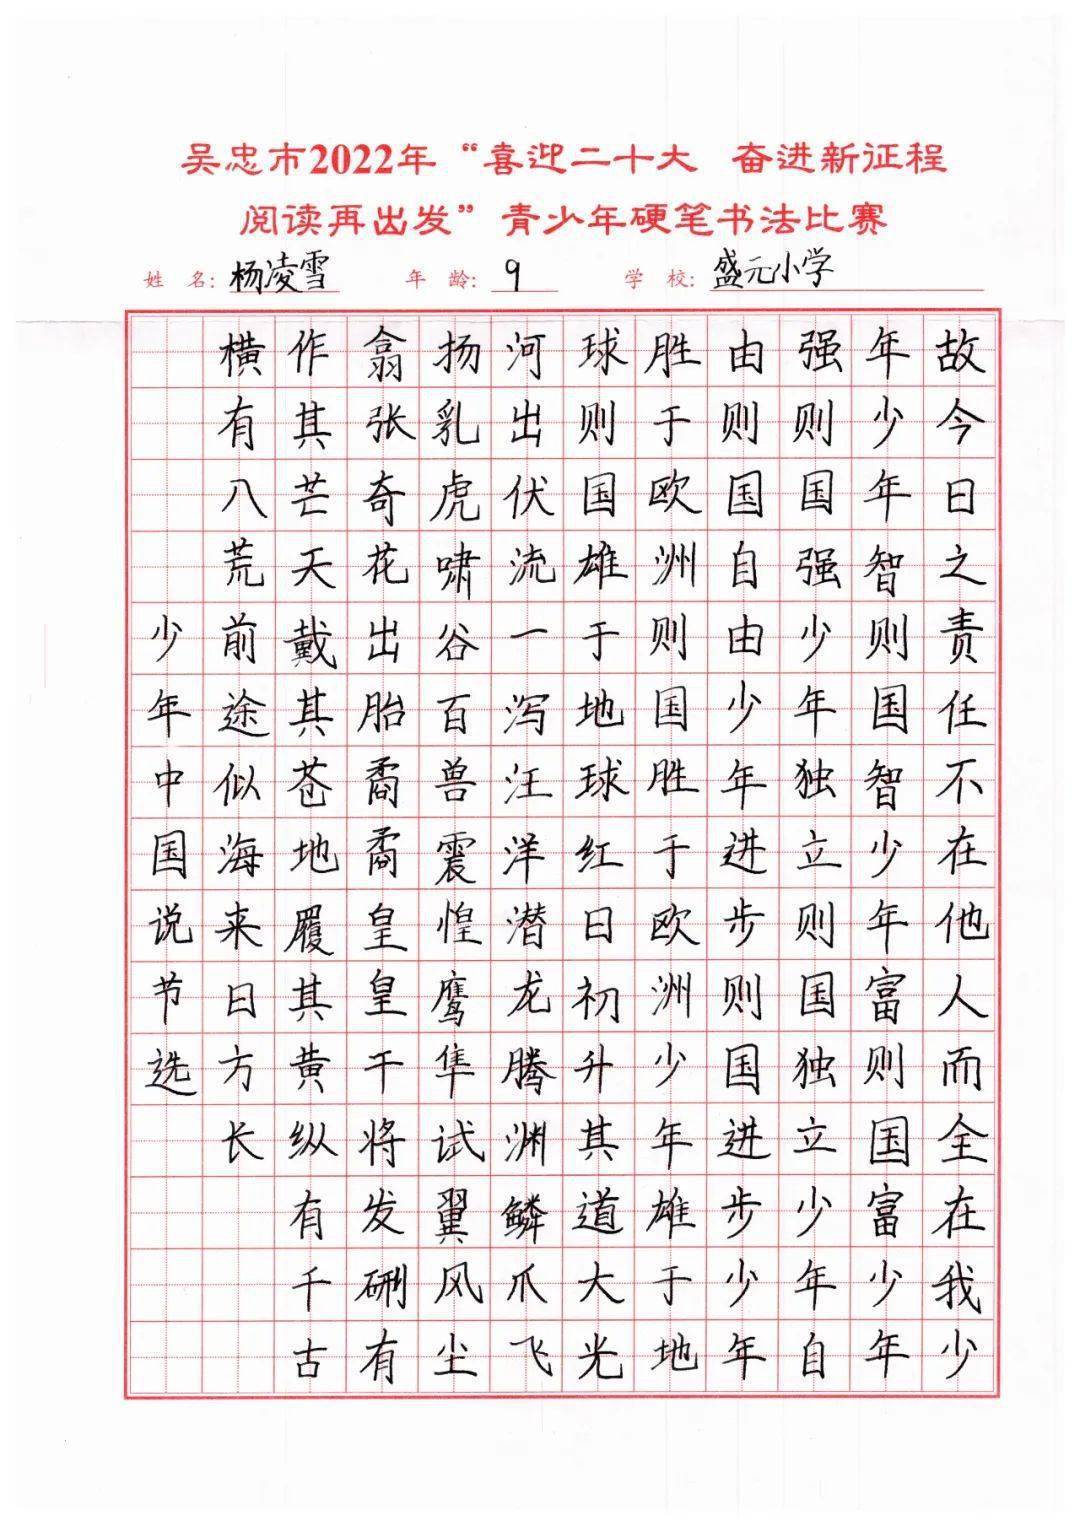 吴忠市2022年“喜迎二十大 奋进新征程
阅读再出发”青少年硬笔书法比赛
姓 名：杨凌雪 年 龄：9 学 校：盛元小学
故今日之责任不在他人而全在我少
年少年智则国智少年富则国富少年
强则国强少年独立则国独立少年自
由则国自由少年进步则国进步少年
胜于欧洲则国胜于欧洲少年雄于地
球则国雄于地球红日初升其道大光
河出伏流一泻汪洋潜龙腾渊鳞爪飞
扬乳虎啸谷百兽震惶鹰隼试翼风尘
翕张奇花出胎矞矞皇皇干将发硎有
作其芒天戴其苍地履其黄纵有千古
横有八荒前途似海来日方长
少年中国说节选